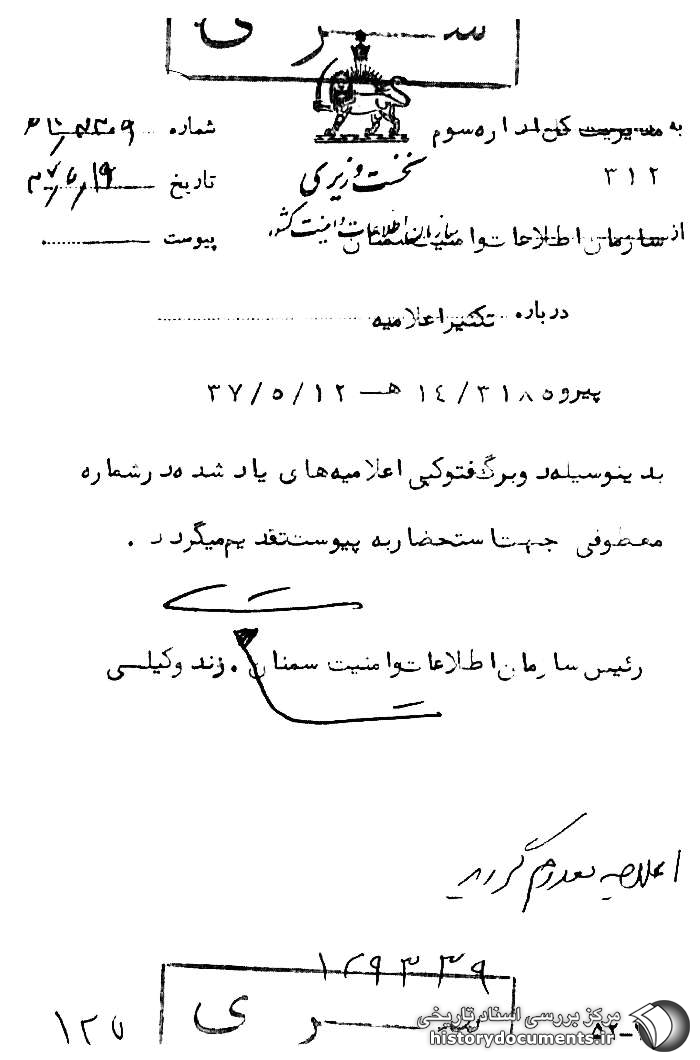 سری
به مدیریت کل اداره سوم
۳۱۲
نخست وزیری
سازمان اطلاعات و امنیت کشور
شماره
تاریخ ۳۷/۵/۱۹
پیوست
از سازمان اطلاعات و امنیت سمنان
درباره تکثیر اعلامیه
پیرو ۱۴/۳۱۸ه۵ هـ ۳۷/۵/۱۲
بدینوسیله دو برگ فتوکپی اعلامیه های یاد شده در شماره
معطوفی جهت استحضار به پیوست تقدیم میگردد .
رئیس سازمان اطلاعات و امنیت سمنان . زند وکیلی
اعلامیه معدوم گردید
۱۲۹۳۳۹
سری
۱۲۵
مرکز بررسی اسناد تاریخی
historydocuments.ir